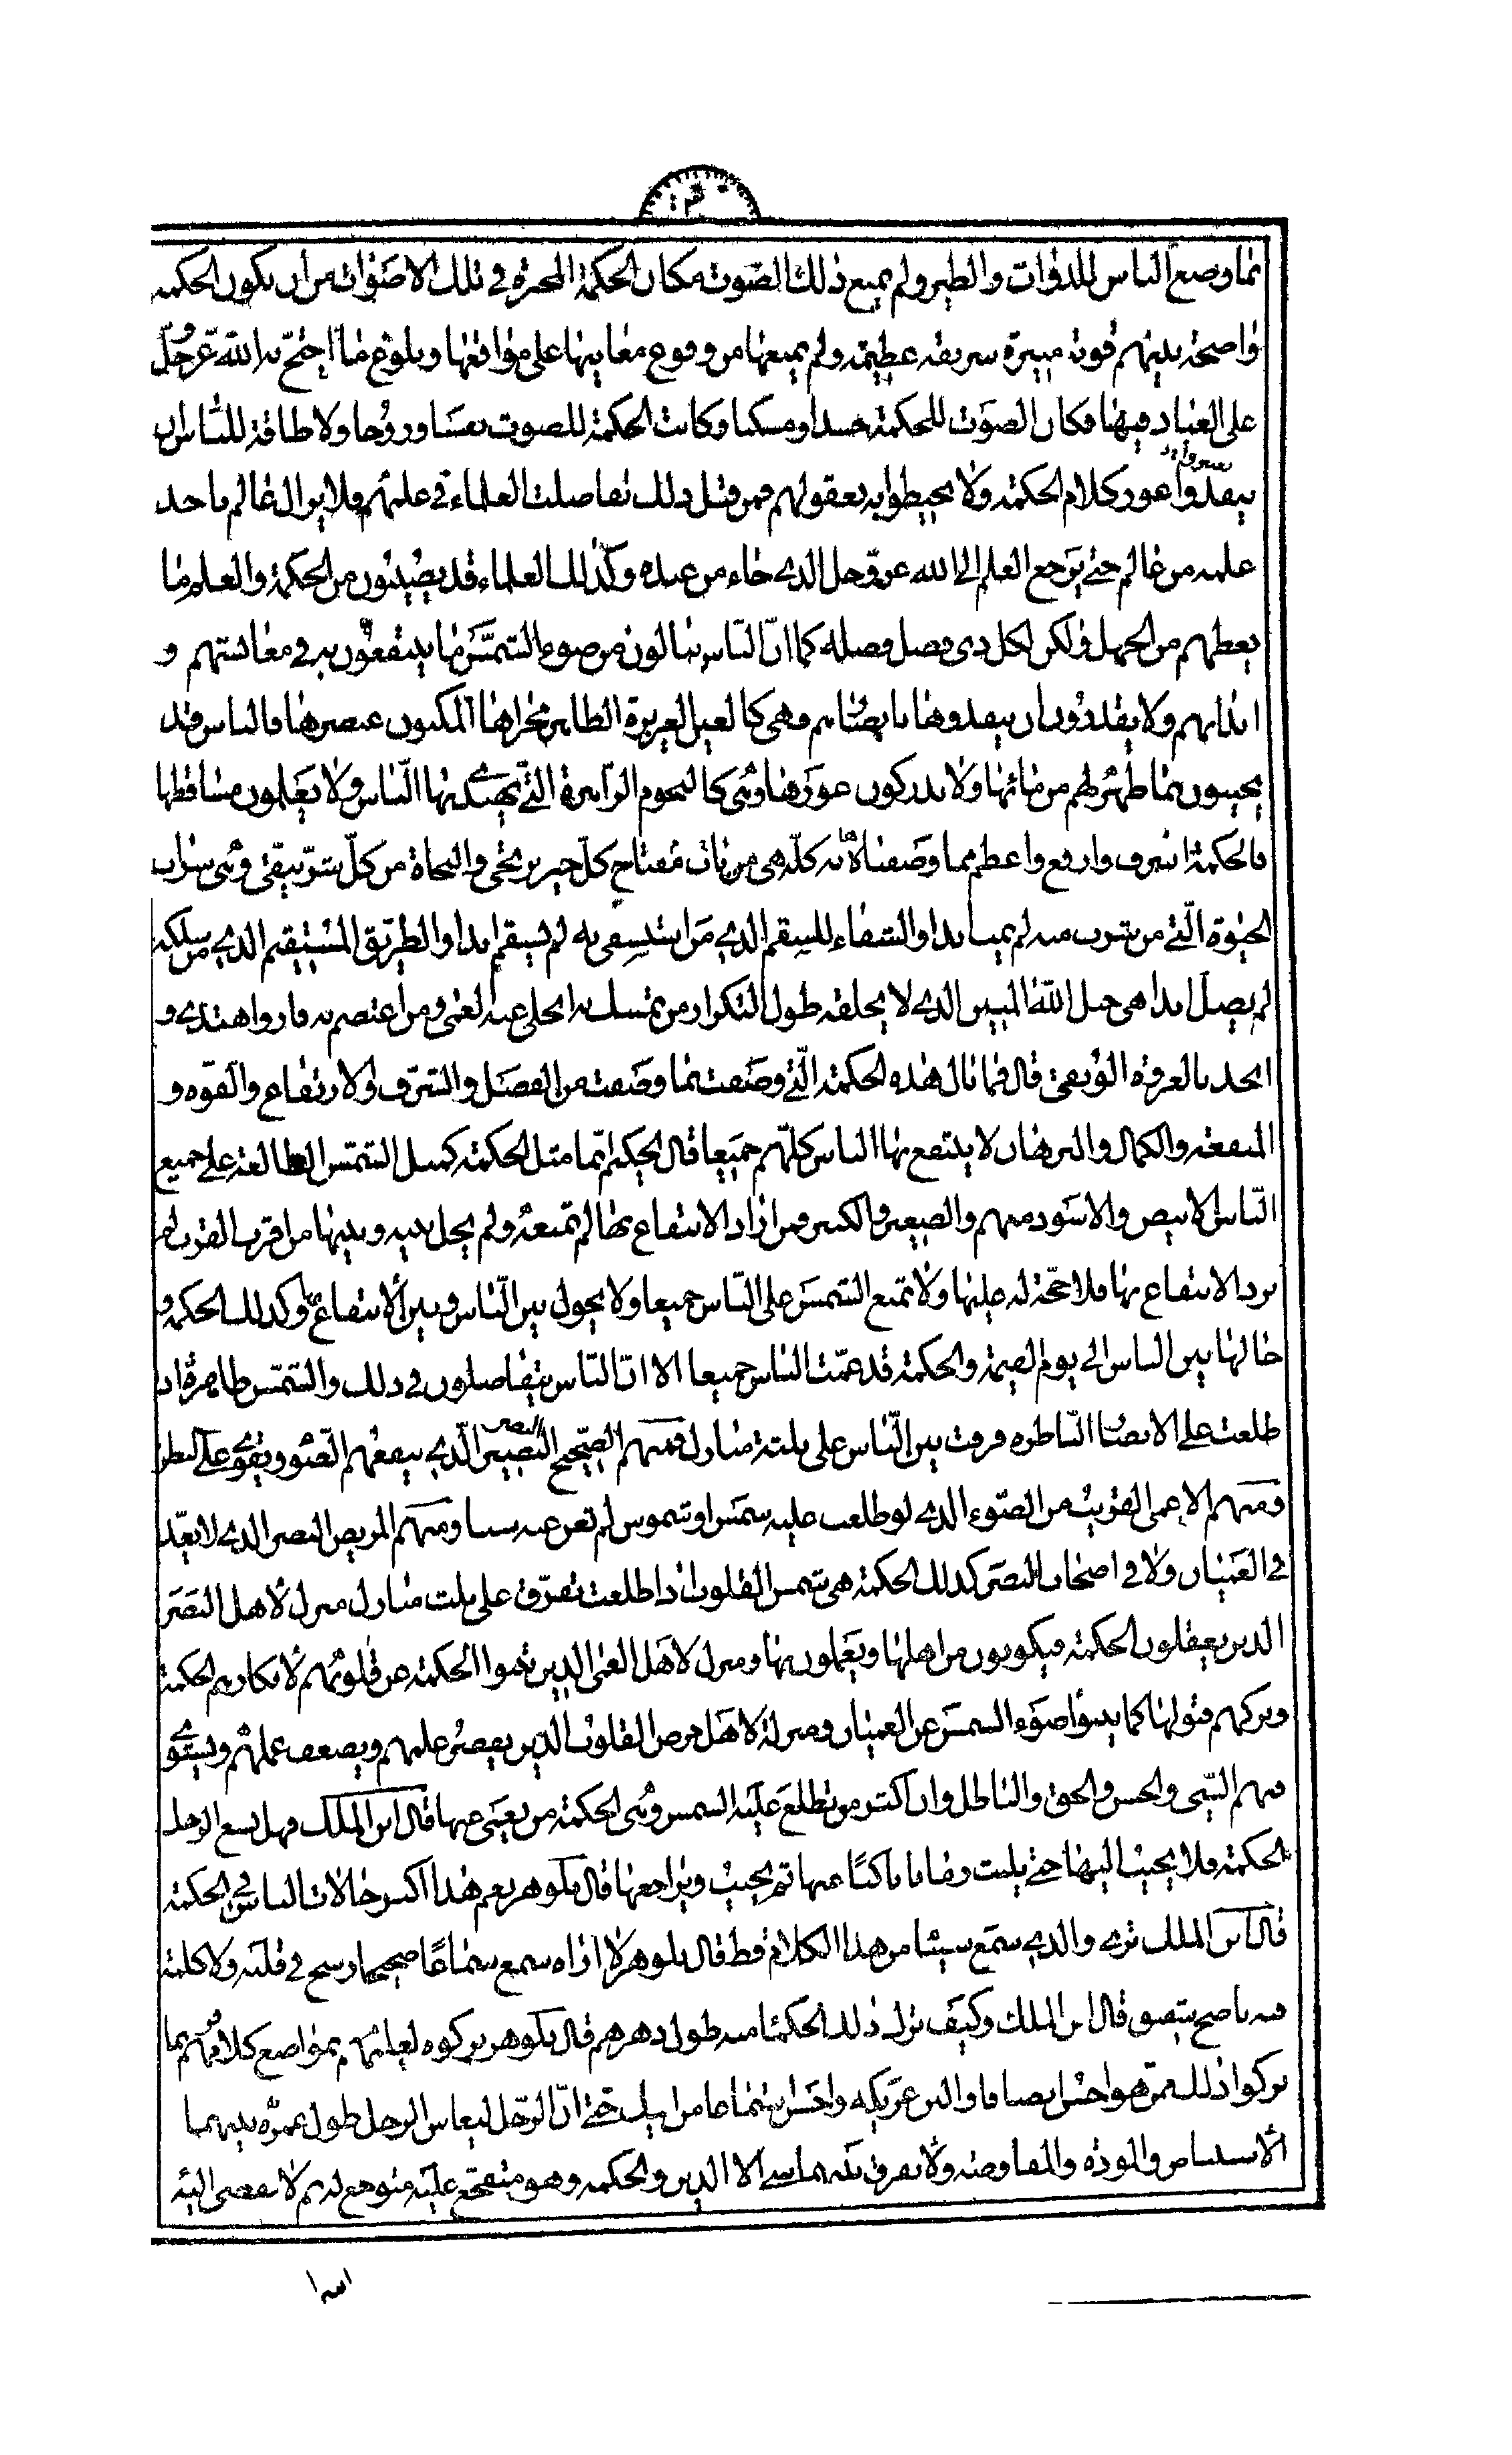 بما وضع الناس للدواب والطير ولم يمنع ذلك الصوت مكان الحكمة المخبرة في تلك الاصوات من ان يكون الحكمة
واضحة بينهم قوية منيرة شريفة عظيمة ولم يمنعها من وقوع معانيها على مواقعها وبلوغ ما احتج به الله عز وجل
على العباد فيها فكان الصوت للحكمة جسدا ومسكنا وكانت الحكمة للصوت نفسا وروحا ولا طاقة للناس ان
ينفذوا غور كلام الحكمة ولا يحيطوا به بعقولهم فمن قبل ذلك تفاضلت العلماء في علمهم فلا يزال عالم ياخذ
علمه من عالم حتى يرجع العلم الى الله عز وجل الذي جاء من عنده وكذلك العلماء قد يصيبون من الحكمة والعلم ما
ينجيهم من الجهل ولكن لكل ذي فضل فضله كما ان الناس ينالون من ضوء الشمس ما ينتفعون به في معاشهم و
ابدانهم ولا يقدرون ان ينفذوها بابصارهم وهي كالعين الغزيرة الظاهر مجراها المكنون عنصرها فالناس قد
يجيبون بما ظهر لهم من مائها ولا يدركون غورها وهي كالنجوم الزاهرة التي يهتدي بها الناس ولا يعلمون مساقطها
فالحكمة اشرف وارفع واعظم مما وصفناها به كله هي مفتاح باب كل خير يرتجى والنجاة من كل شر يتقى وهي شراب
الحيوة التي من شرب منه لم يمت ابدا والشفاء للسقم الذي من استشفى به لم يسقم ابدا والطريق المستقيم الذي من سلكه
لم يضل ابدا هي حبل الله المتين الذي لا يخلقه طول التكرار من تمسك به انجلى عنه العمى ومن اعتصم به فاز واهتدى و
اخذ بالعروة الوثقى قال فما بال هذه الحكمة التي وصفت بما وصفت من الفضل والشرف والارتفاع والقوة و
المنفعة والكمال والبرهان لا ينتفع بها الناس كلهم جميعا قال الحكيم انما مثل الحكمة كمثل الشمس الطالعة على جميع
الناس الابيض والاسود منهم والصغير والكبير فمن اراد الانتفاع بها لم تمنعه ولم يحل بينه وبينها من اقربهم وابعدهم ومن لم
يرد الانتفاع بها فلا حجة له عليها ولا تمنع الشمس على الناس جميعا ولا يحول بين الناس وبين الانتفاع بها وكذلك الحكمة و
حالها بين الناس الى يوم القيمة والحكمة قد عمت الناس جميعا الا ان الناس يتفاضلون في ذلك والشمس ظاهرة اذ
طلعت على الابصار الناظرة فرقت بين الناس على ثلثة منازل فمنهم الصحيح البصير الذي ينفعهم الضوء ويقوى على النظر
ومنهم الاعمى القريب من الضوء الذي لو طلعت عليه شمس او شموس لم تغن عنه شيئا ومنهم المريض البصر الذي لا يعد
في العميان ولا في اصحاب البصر كذلك الحكمة هي شمس القلوب اذا طلعت تفرق على ثلث منازل منزل لاهل البصر
الذين يعقلون الحكمة فيكونون من اهلها ويعملون بها ومنزل لاهل العمى الذين تنبوا الحكمة عن قلوبهم لانكارهم الحكمة
وتركهم قبولها كما ينبوا ضوء الشمس عن العميان ومنزلة لاهل مرض القلوب الذين يقصر علمهم ويضعف عملهم ويستوي
فيهم السيئ والحسن والحق والباطل وان اكثر من تطلع عليه الشمس وهي الحكمة من يعمى عنها قال ابن الملك فهل يسع الرجل
الحكمة فلا يجيب اليها حتى يلبث زمانا ناكبا عنها ثم يجيب ويراجعها قال بلوهر نعم هذا اكثر حالات الناس في الحكمة
قال ابن الملك ترى والدي سمع شيئا من هذا الكلام قط قال بلوهر لا اراه سمع سماعا صحيحا رسخ في قلبه ولا كلمه
فيه ناصح شفيق قال ابن الملك وكيف ترك ذلك الحكماء منه طول دهرهم قال بلوهر تركوه لعلمهم بمواضع كلامهم فربما
تركوا ذلك ممن هو احسن انصافا والين عريكة واحسن استماعا من ابيك حتى ان الرجل ليعاش الرجل طول عمره بينهما
الاستيناس والمودة والمفاوضة ولا يفرق بينهما شيء الا الدين والحكمة وهو متفجع عليه متوجع له ثم لا يفضي اليه